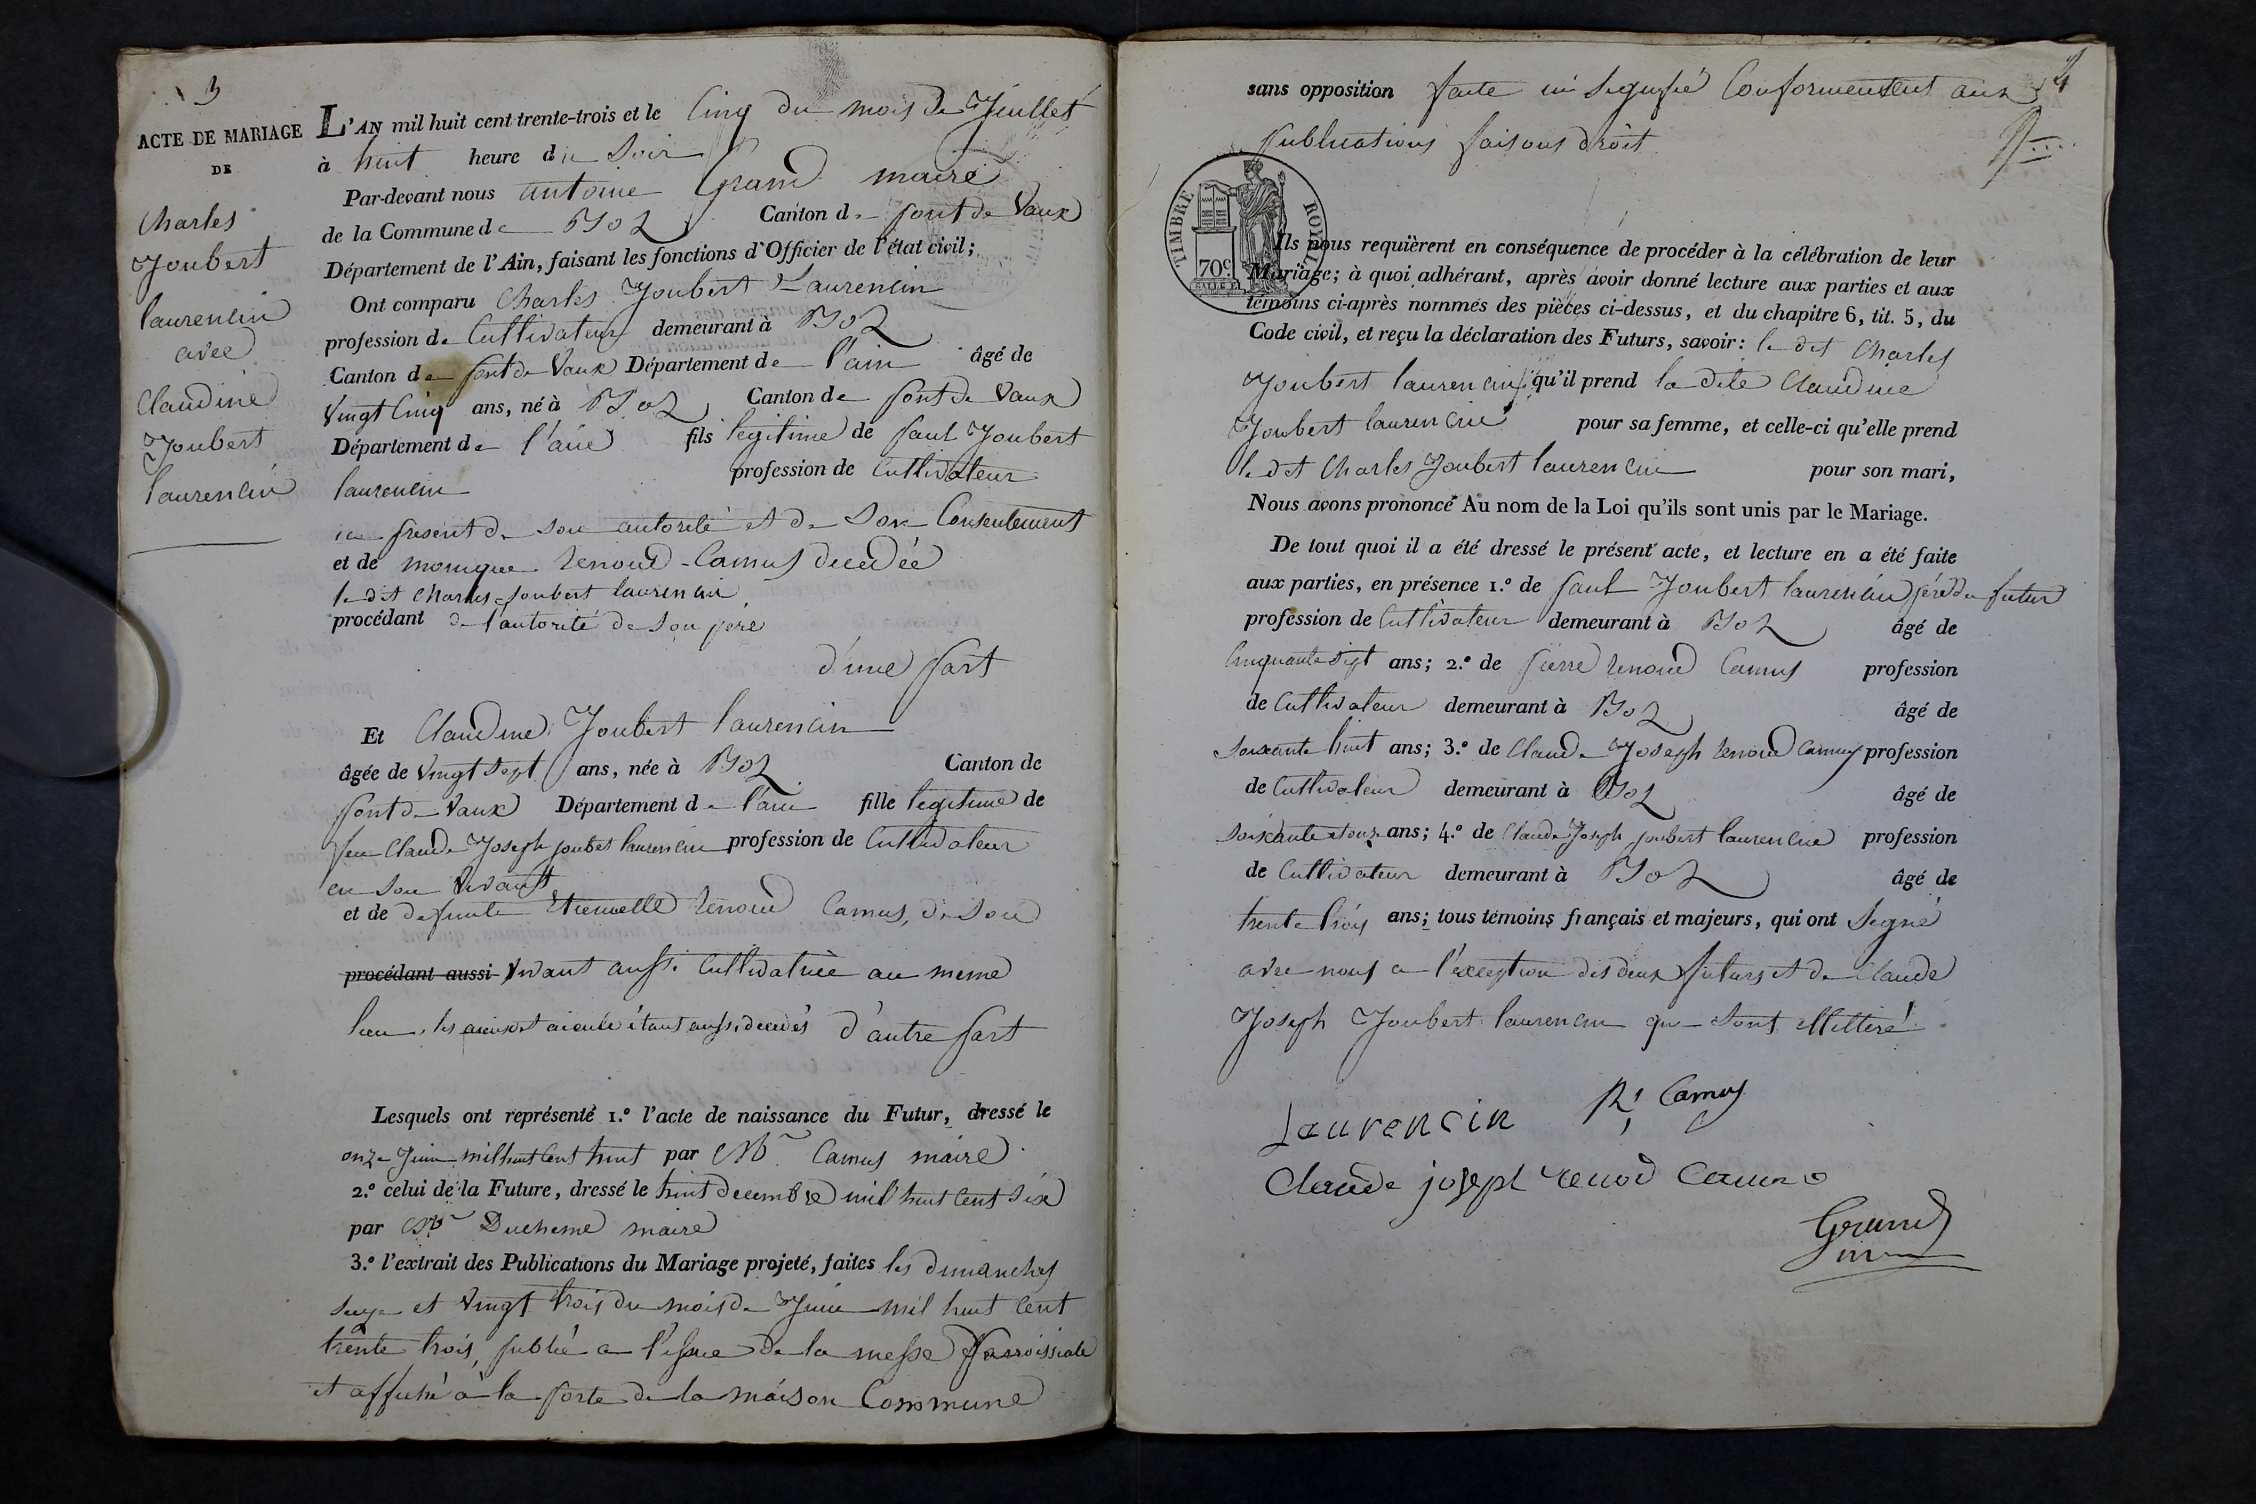 3
ACTE DE MARIAGE
DE
Charles
Joubert
laurencin
avec
Claudine
Joubert
laurencin
L'AN mil huit cent trente-trois et le Cinq du mois de Juillet
à huit heure du Soir
Par-devant nous antoine Grand maire
de la Commune de Boz Canton de pont de Vaux
Département de l'Ain, faisant les fonctions d'Officier de l'état civil;
Ont comparu Charles Joubert Laurencin
profession de Cultivateur demeurant à Boz
Canton de pont de Vaux Département de l'ain âgé de
Vingt Cinq ans, né à Boz Canton de pont de Vaux
Département de l'ain fils legitime de paul Joubert
laurencin profession de Cultivateur
ici present de son autorité et de Son Consentement
et de monique renoud-Camus decedée
le dit Charles Joubert laurencin
procédant de l'autorité de Son pere
d'une part
Et Claudine Joubert laurencin
âgée de Vingt Sept ans, née à Boz Canton de
pont de Vaux Département de l'ain fille legitime de
feu Claude Joseph joubert laurencin profession de Cultivateur
en Son Vivant
et de defunte Etiennette renoud Camus, de Son
procédant aussi Vivant aussi Cultivatrice au meme
lieu, les aieux et aieule étant aussi decedés d'autre part
Lesquels ont représenté 1.º l'acte de naissance du Futur, dressé le
onze Juin mil huit Cent huit par Mr Camus maire
2.º celui de la Future, dressé le huit decembre mil huit Cent Six
par Mr Duchesne maire
3.º l'extrait des Publications du Mariage projeté, faites les dimanches
Seize et Vingt trois du mois de Juin mil huit Cent
trente trois, publié a l'issue de la messe parroissiale
et affiché à la porte de la maison Commune
sans opposition faite ni Signifié Conformement aux
publications faisons droit
TIMBRE ROYAL
70c
Ils nous requièrent en conséquence de procéder à la célébration de leur
Mariage; à quoi adhérant, après avoir donné lecture aux parties et aux
témoins ci-après nommés des pièces ci-dessus, et du chapitre 6, tit. 5, du
Code civil, et reçu la déclaration des Futurs, savoir: le dit Charles
Joubert laurencin qu'il prend la dite Claudine
Joubert laurencin pour sa femme, et celle-ci qu'elle prend
le dit Charles Joubert laurencin pour son mari,
Nous avons prononcé Au nom de la Loi qu'ils sont unis par le Mariage.
De tout quoi il a été dressé le présent acte, et lecture en a été faite
aux parties, en présence 1.º de paul Joubert laurencin père du futur
profession de Cultivateur demeurant à Boz âgé de
Cinquante Sept ans; 2.º de pierre renoud Camus profession
de Cultivateur demeurant à Boz âgé de
Soixante huit ans; 3.º de Claude Joseph renoud Camus profession
de Cultivateur demeurant à Boz âgé de
Soixante et onze ans; 4.º de Claude Joseph joubert laurencin profession
de Cultivateur demeurant à Boz âgé de
trente trois ans; tous témoins français et majeurs, qui ont Signé
avec nous a l'exception des deux futurs et de Claude
Joseph Joubert laurencin qui Sont illitteré
Laurencin Rd Camus
Claude joseph renod Camus
Grand